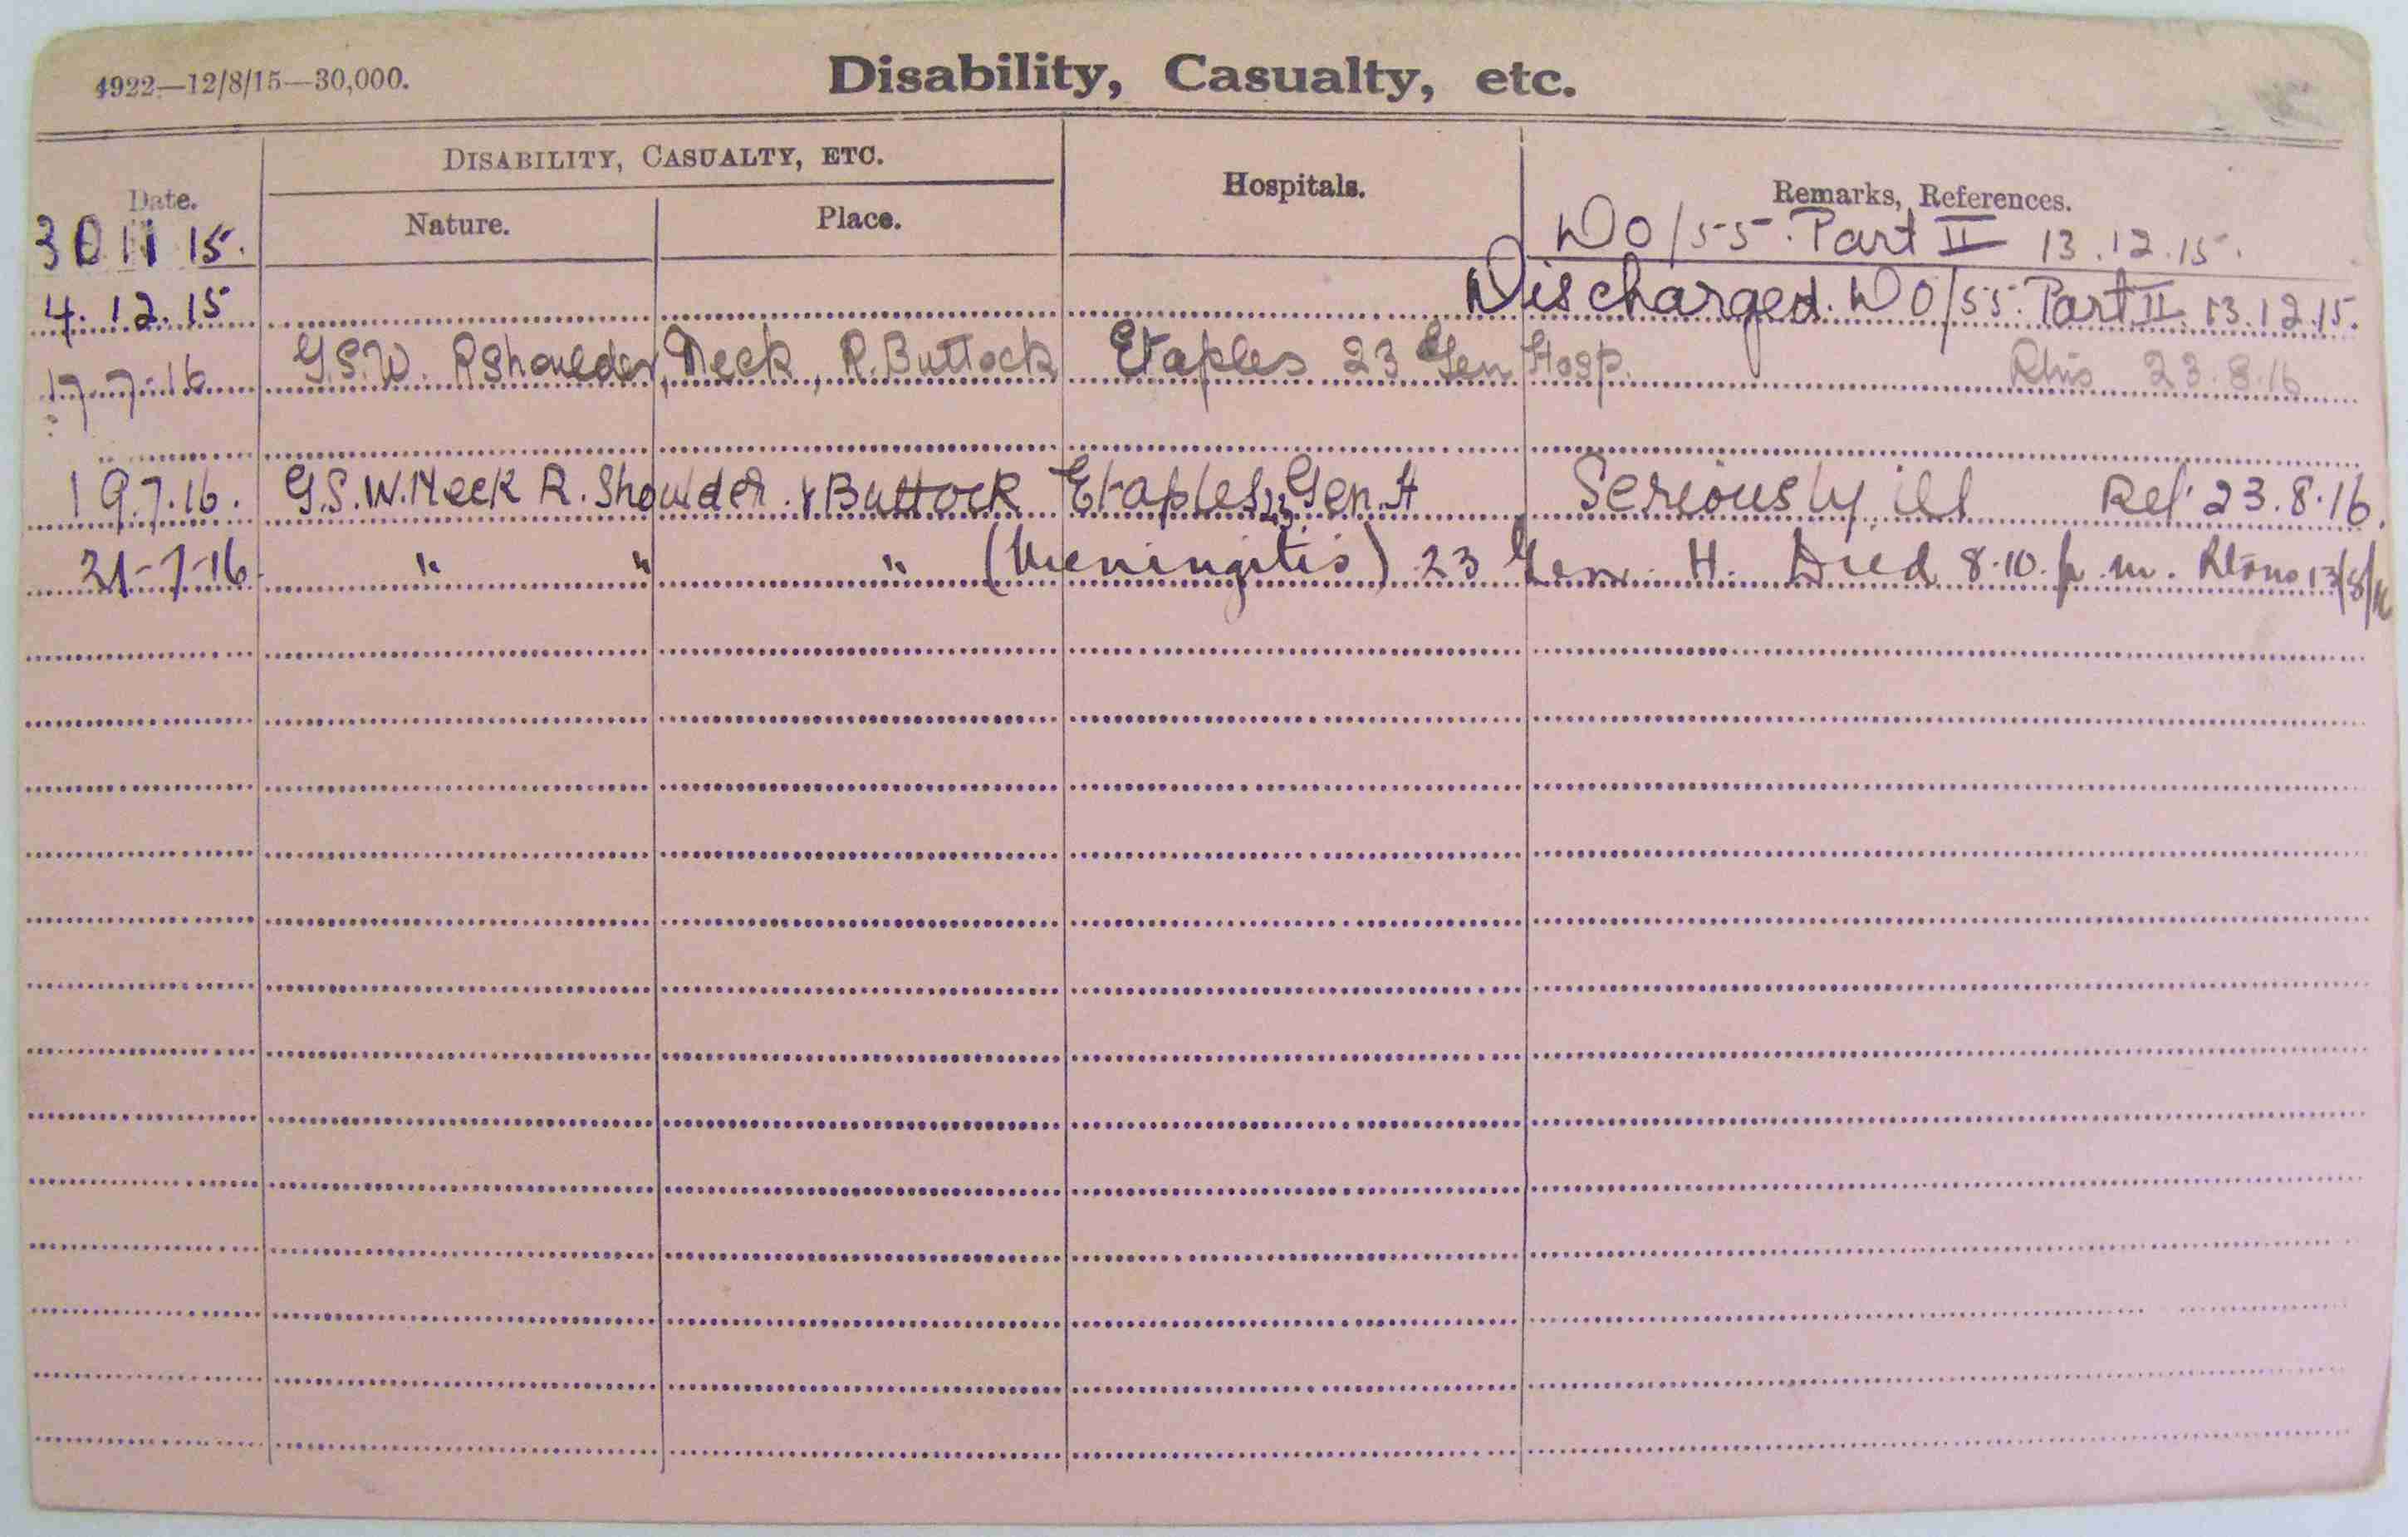 4922—12/8/15—30,000.
Disability, Casualty, etc.
Date.
DISABILITY, CASUALTY, ETC.
Nature.
Place.
Hospitals.
Remarks, References.
30 11 15. DO/55. Part II 13.12.15.
4.12.15 Discharged. DO/55. Part II 13.12.15.
17-7-16 G.S.W. R Shoulder, Neck, R. Buttock Etaples 23 Gen Hosp. 23.8.16
19.7.16. G.S.W. Neck R. Shoulder & Buttock Etaples 23 Gen. H Seriously ill Rel 23.8.16.
21-7-16 " " " (Meningitis) 23 Gen. H. Died 8.10. p.m. 13/8/16